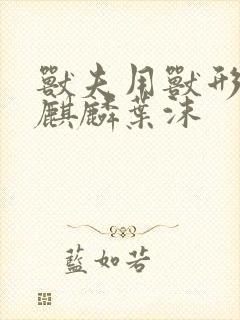 獸夫用獸形
麒麟葉沫
藍如若